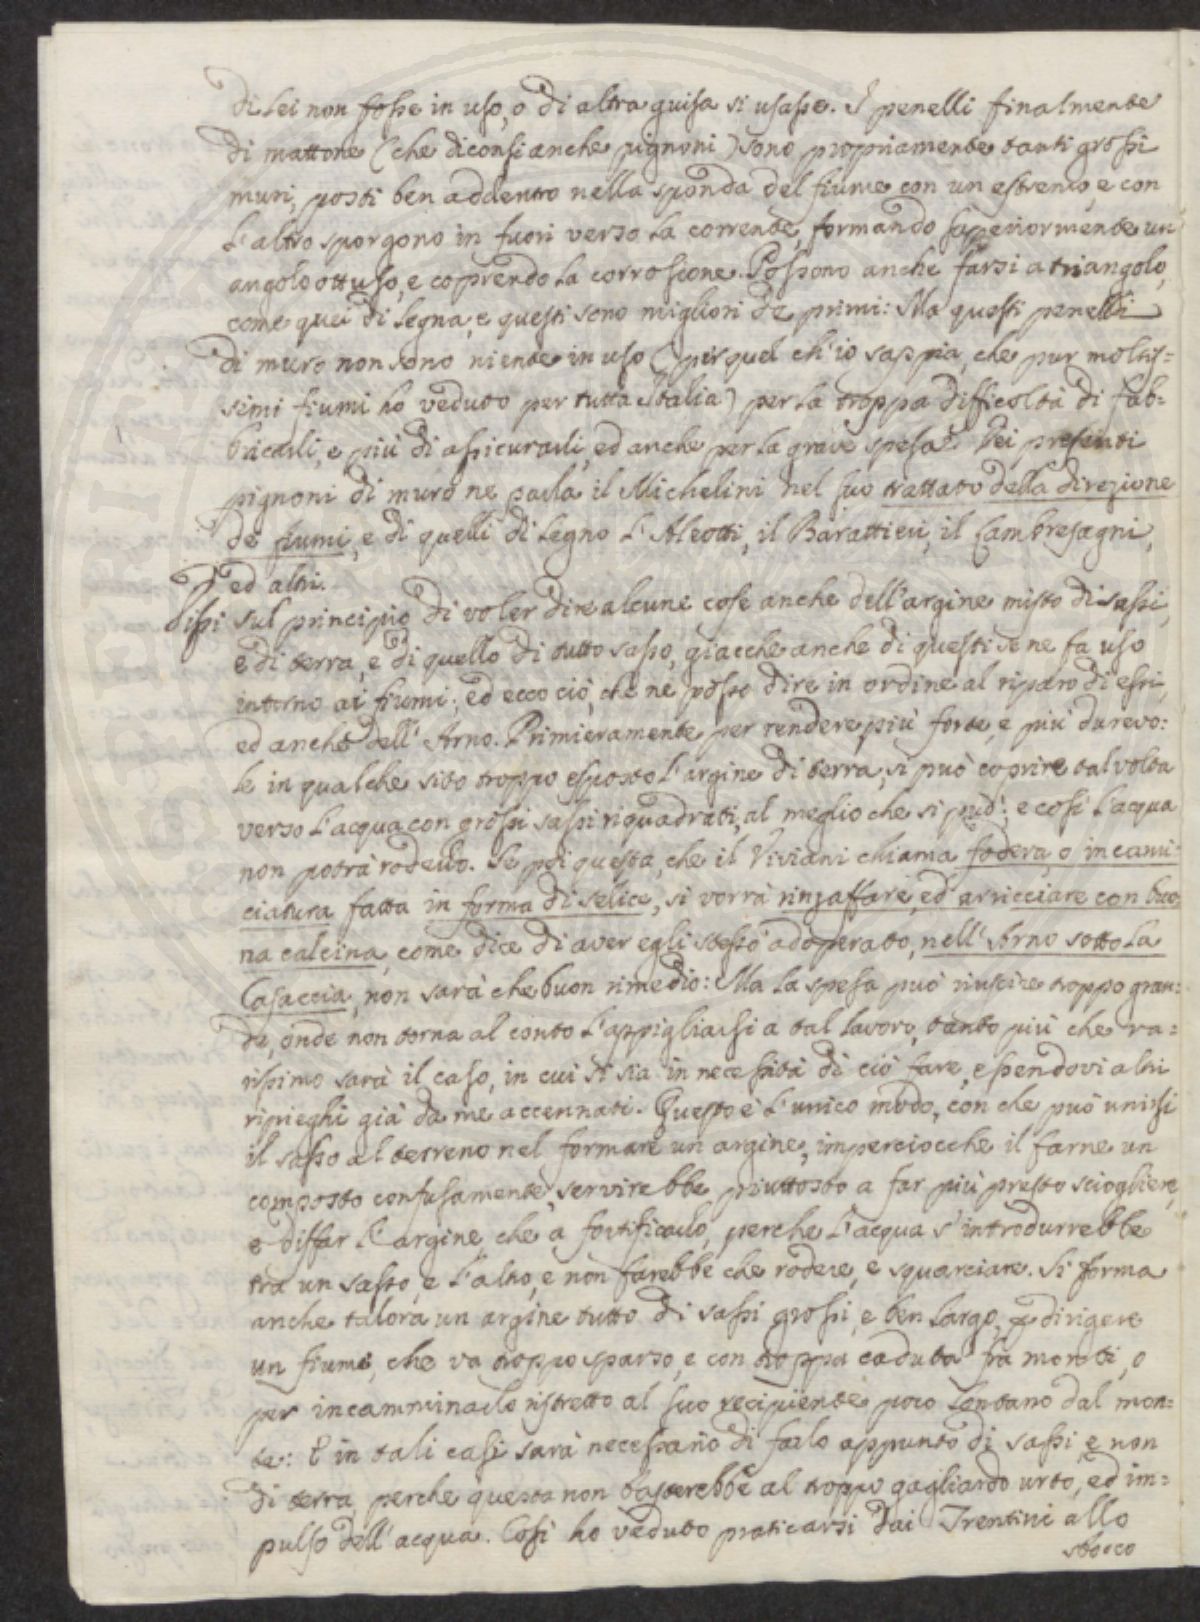 di lei non fosse in uso, o di altra guisa si usasse. I penelli finalmente
di mattone (che diconsi anche pignoni) sono propriamente tanti grossi
muri, posti ben addentro nella sponda del fiume con un estremo, e con
l'altro sporgono in fuori verso la corrente, formando superiormente un
angolo ottuso, e coprendo la corrosione. Possono anche farsi a triangolo,
come quei di legna, e questi sono migliori de primi: Ma questi penelli
di muro non sono niente in uso (per quel ch'io sappia, che pur moltis=
simi fiumi ho veduto per tutta Italia) per la troppa difficoltà di fab=
bricarli, e più di assicurarli, ed anche per la grave spesa. Dei presenti
pignoni di muro ne parla il Michelini nel suo trattato della direzione
de fiumi, e di quelli di legno l'Aleotti, il Barattieri, il Cambresagni,
ed altri.
Dissi sul principio di voler dire alcune cose anche dell'argine misto di sassi,
e di terra, e di quello di tutto sasso, giacche anche di questi se ne fa uso
intorno ai fiumi; ed ecco ciò, che ne posso dire in ordine al riparo di essi,
ed anche dell'Arno. Primieramente per rendere più forte, e più durevo=
le in qualche sito troppo esposto l'argine di terra, si può coprire talvolta
verso l'acqua con grossi sassi riquadrati, al meglio che si può: e così l'acqua
non potrà roderlo. Se poi questa, che il Viviani chiama fodera, o incami=
ciatura fatta in forma di selice, si vorrà rinzaffare, ed arricciare con buo
na calcina, come dice di aver egli stesso adoperato, nell'Arno sotto la
Casaccia, non sarà che buon rimedio: Ma la spesa può riuscire troppo gran=
de, onde non torna al conto l'appigliarsi a tal lavoro, tanto più che ra=
rissimo sarà il caso, in cui si sia in necessità di ciò fare, essendovi altri
ripieghi già da me accennati. Questo è l'unico modo, con che può unirsi
il sasso al terreno nel formare un argine, imperciocche il farne un
composto confusamente, servirebbe piuttosto a far più presto sciogliere,
e disfar l'argine, che a fortificarlo, perche l'acqua s'introdurrebbe
tra un sasso, e l'altro, e non farebbe che rodere, e squarciare. Si forma
anche talora un argine tutto di sassi grossi, e ben largo, p dirigere
un fiume, che va troppo sparso, e con troppa caduta frà monti, o
per incamminarlo ristretto al suo recipiente poco lontano dal mon=
te: E in tali casi sarà necessario di farlo appunto di sassi, e non
di terra, perche questa non basterebbe al troppo gagliardo urto, ed im=
pulso dell'acqua. Così ho veduto praticarsi dai Trentini allo
sbocco